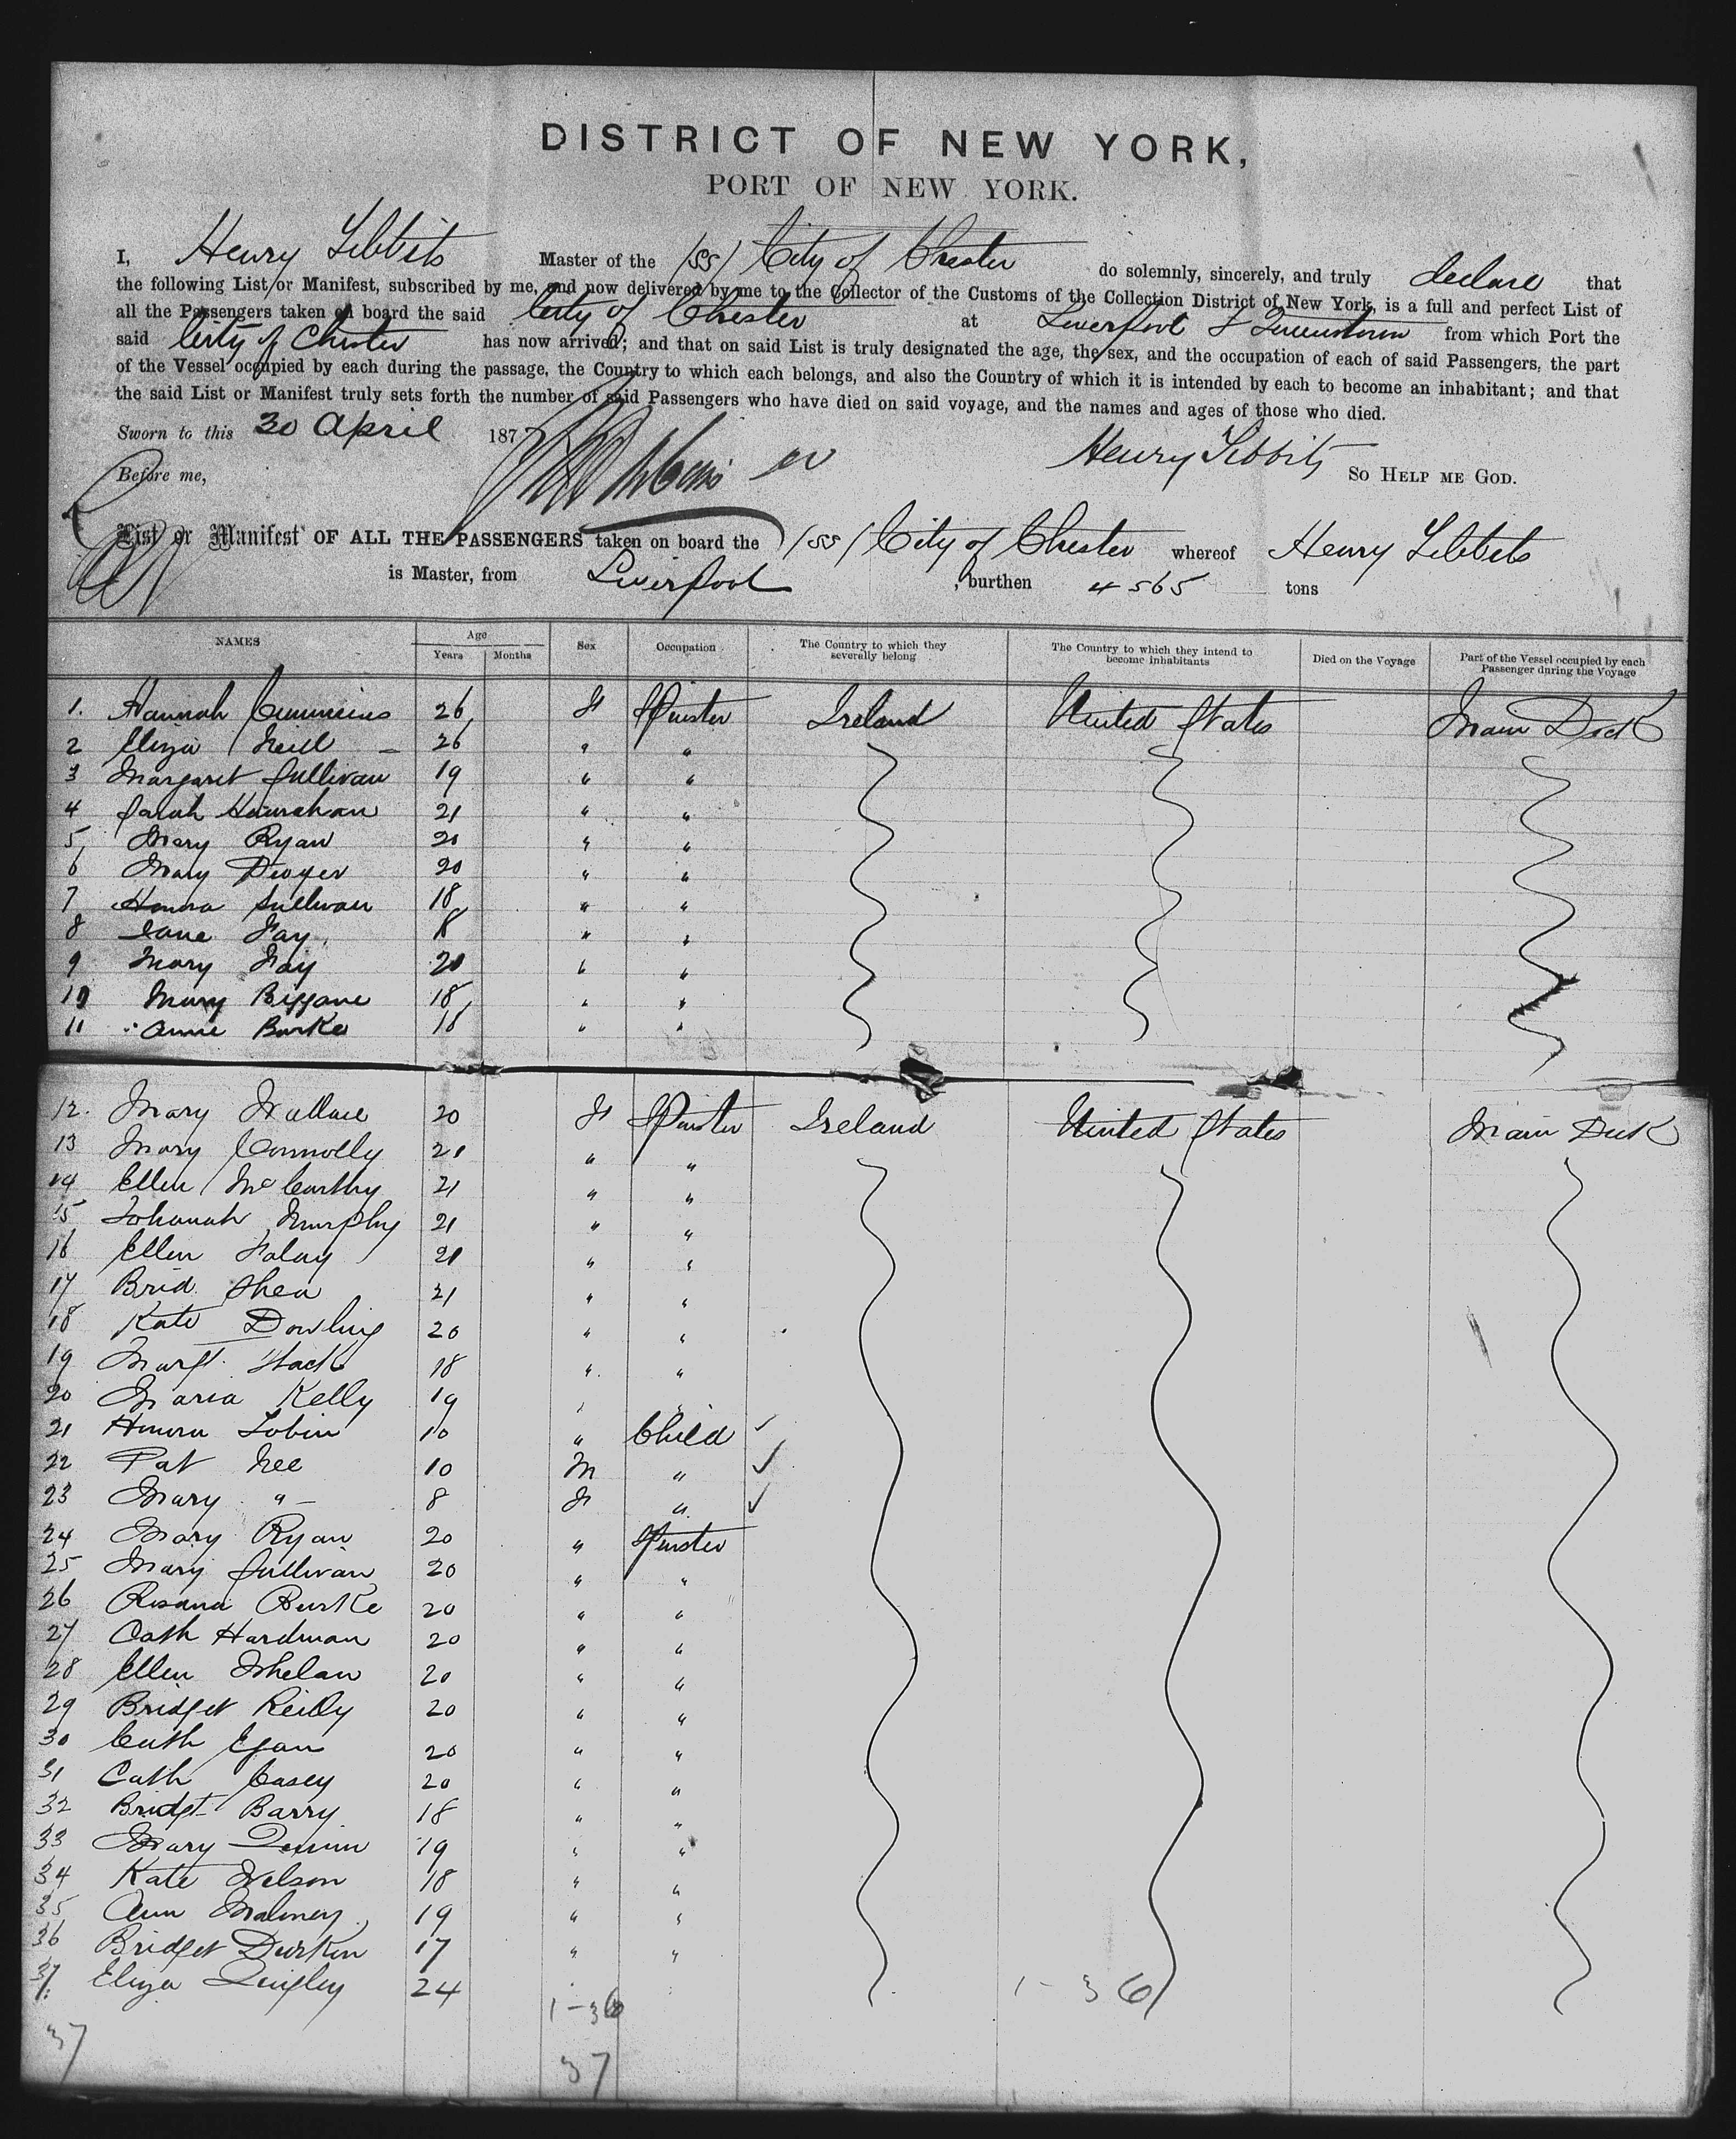 DISTRICT OF NEW YORK,
PORT OF NEW YORK.
I, Henry Tibbits Master of the (SS) City of Chester do solemnly, sincerely, and truly declare that
the following List or Manifest, subscribed by me, and now delivered by me to the Collector of the Customs of the Collection District of New York, is a full and perfect List of
all the Passengers taken on board the said City of Chester at Liverpool & Queenstown from which Port the
said City of Chester has now arrived; and that on said List is truly designated the age, the sex, and the occupation of each of said Passengers, the part
of the Vessel occupied by each during the passage, the Country to which each belongs, and also the Country of which it is intended by each to become an inhabitant; and that
the said List or Manifest truly sets forth the number of said Passengers who have died on said voyage, and the names and ages of those who died.
Sworn to this 30 April 187
Henry Tibbits So HELP ME GOD.
Before me,
List or Manifest OF ALL THE PASSENGERS taken on board the (SS) City of Chester whereof Henry Tibbits
is Master, from Liverpool, burthen 4565 tons
NAMES Age Years Months Sex Occupation The Country to which they severally belong The Country to which they intend to become inhabitants Died on the Voyage Part of the Vessel occupied by each Passenger during the Voyage
1. Hannah Cummins 26 F Spinster Ireland United States Main Deck
2 Eliza Neill 26 " "
3 Margaret Sullivan 19 " "
4 Sarah Hourahan 21 " "
5 Mary Ryan 20 " "
6 Mary Dwyer 20 " "
7 Honora Sullivan 18 " "
8 Jane Fay 18 " "
9 Mary Fay 20 " "
10 Mary Biggane 18 " "
11 Annie Burke 18 " "
12. Mary Wallace 20 F Spinster Ireland United States Main Deck
13 Mary Connolly 21 " "
14 Ellen McCarthy 21 " "
15 Johanah Murphy 21 " "
16 Ellen Foley 21 " "
17 Brid Shea 21 " "
18 Kate Dowling 20 " "
19 Margt. Stack 18 " "
20 Maria Kelly 19 " "
21 Honora Tobin 10 " Child
22 Pat Nee 10 M "
23 Mary " 8 F "
24 Mary Ryan 20 " Spinster
25 Mary Sullivan 20 " "
26 Rosana Burke 20 " "
27 Cath Hardman 20 " "
28 Ellen Whelan 20 " "
29 Bridget Reilly 20 " "
30 Cath Egan 20 " "
31 Cath Casey 20 " "
32 Bridgt Barry 18 " "
33 Mary Quinn 19 " "
34 Kate Nelson 18 " "
35 Ann Maloney 19 " "
36 Bridget Durkin 17 " "
37. Eliza Quigley 24
1-36 1-36
37 37